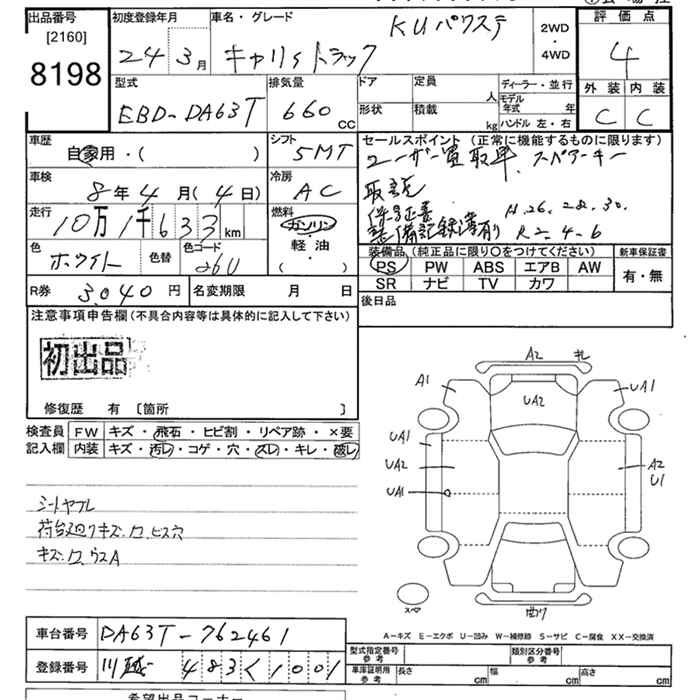 出品番号
[2160]
8198
初度登録年月
24 3月
車名・グレード
KUパワステ
キャリィトラック
2WD
・
4WD
評価点
4
外装 内装
C C
型式
EBD-DA63T
排気量
660 cc
ドア
形状
定員
人
積載
kg
ディーラー・並行
モデル年式 年
ハンドル 左・右
車歴
自家用・( )
シフト
5MT
セールスポイント (正常に機能するものに限ります)
ユーザー買取車 スペアキー
取説
保証書
整備記録簿有り H.26.28.30.
R2.4.6
車検
8年4月(4日)
冷房
AC
走行
10万1千633km
燃料
ガソリン・
軽油・
( )
色
ホワイト
色替
色コード
26U
装備品 (純正品に限り○をつけてください)
PS PW ABS エアB AW
SR ナビ TV カワ
新車保証書
有・無
R券 3,040円
名変期限 月 日
後日品
注意事項申告欄 (不具合内容等は具体的に記入して下さい)
初出品
修復歴 有 〔箇所 〕
検査員
記入欄
FW キズ・飛石・ヒビ割・リペア跡・×要
内装 キズ・汚レ・コゲ・穴・スレ・キレ・破レ
シートヤブレ
荷台廻りキズ.ワ.ビス穴
キズ.ワ.ウスA
A2 キレ
A1
UA2
UA1
UA1
UA2
UA1
A2
U1
スペア
曲り
A-キズ E-エクボ U-凹み W-補修跡 S-サビ C-腐食 XX-交換済
車台番号 DA63T-762461
登録番号 川越 483く1001
型式指定番号
参考
類別区分番号
参考
車庫証明用
参考
長さ cm 幅 cm 高さ cm
希望出品コーナー